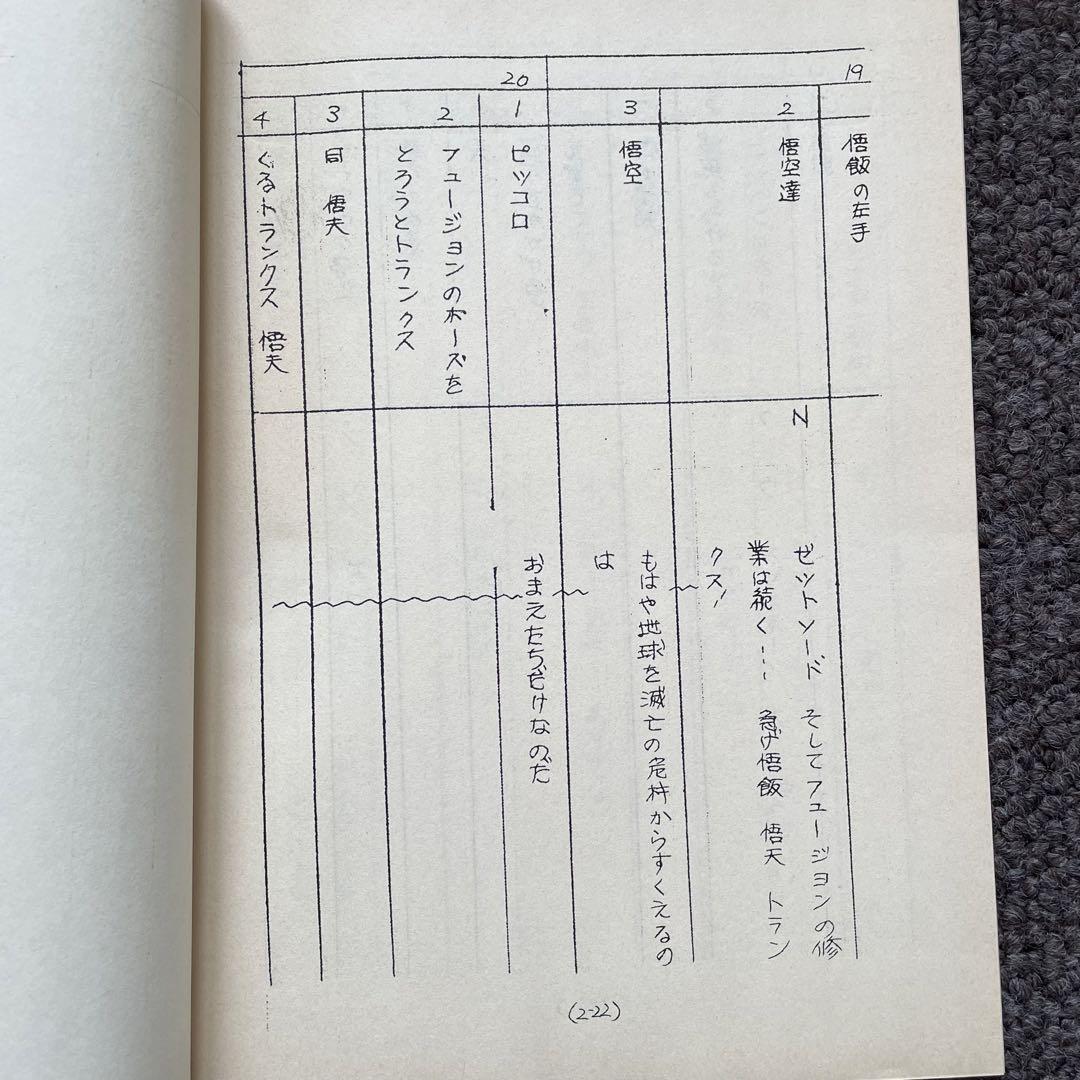 19
悟飯の左手
2
悟空達
N
ゼットソード そしてフュージョンの修
業は続く… 急げ悟飯 悟天 トラン
クス!
3
悟空
もはや地球を滅亡の危杵からすくえるの
は
おまえたちだけなのだ
20
1
ピッコロ
2
フュージョンのポーズを
とろうとトランクス
3
同 悟夫
4
ぐるトランクス 悟夫
(2-22)